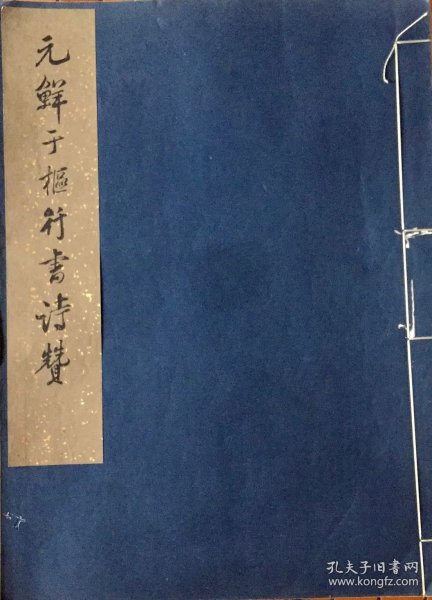 元鲜于樞行书诗贊
孔夫子旧书网
www.kongfz.com